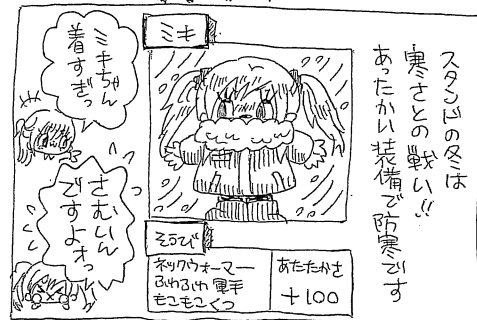 スタンドの冬は
寒さとの戦い!!
あったかい装備で防寒です
ミキ
ミキちゃん
着すぎっ
さむいんですよォっ
そうび
ネックウォーマー
ふわふわ軍手
もこもこくつ
あたたかさ
+100